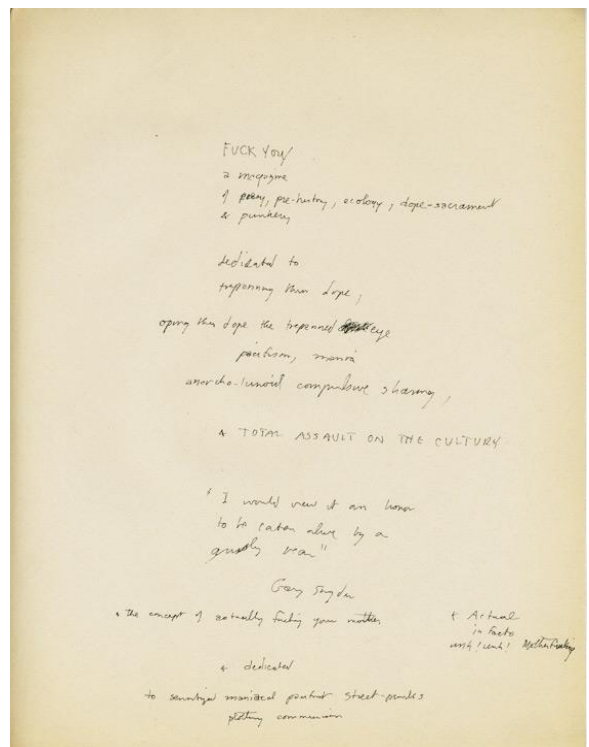 FUCK YOU/
a magazine
of poesy, pre-history, ecology, dope-sacrament
& punkery
dedicated to
trepanning thru dope,
oping thru dope the trepanned eye
pacifism, mania
anarcho-lunoid compulsive sharing,
& TOTAL ASSAULT ON THE CULTURE
"I would view it an honor
to be eaten alive by a
grizzly bear"
Gary Snyder
& the concept of actually fucking your mother
& Actual
in facto
unh! unh! Motherfucking
& dedicated
to maniacal pacifist street-punks
plotting communism